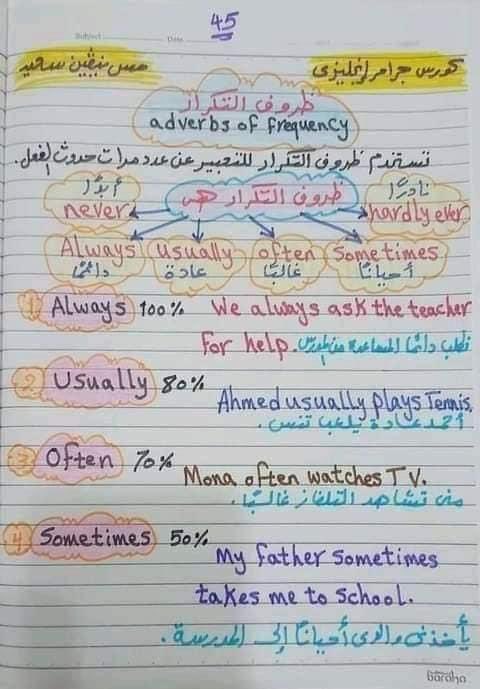 45
Subject
Date
كورس جرامر إنجليزى
مس نيڤين سعيد
ظروف التكرار
adverbs of frequency
نستخدم ظروف التكرار للتعبير عن عدد مرات حدوث الفعل.
أبدًا
never
ظروف التكرار هى
نادرًا
hardly ever
Always usually often Sometimes
دائمًا عادة غالبًا أحيانًا
1 Always 100% We always ask the teacher
for help. نطلب دائمًا المساعدة من المدرس
2 Usually 80%
Ahmed usually plays Tennis.
أحمد عادة يلعب تنس.
3 Often 70% Mona often watches TV.
منى تشاهد التلفاز غالبًا.
4 Sometimes 50% My father sometimes
takes me to school.
يأخذنى والدى أحيانًا إلى المدرسة.
baraha